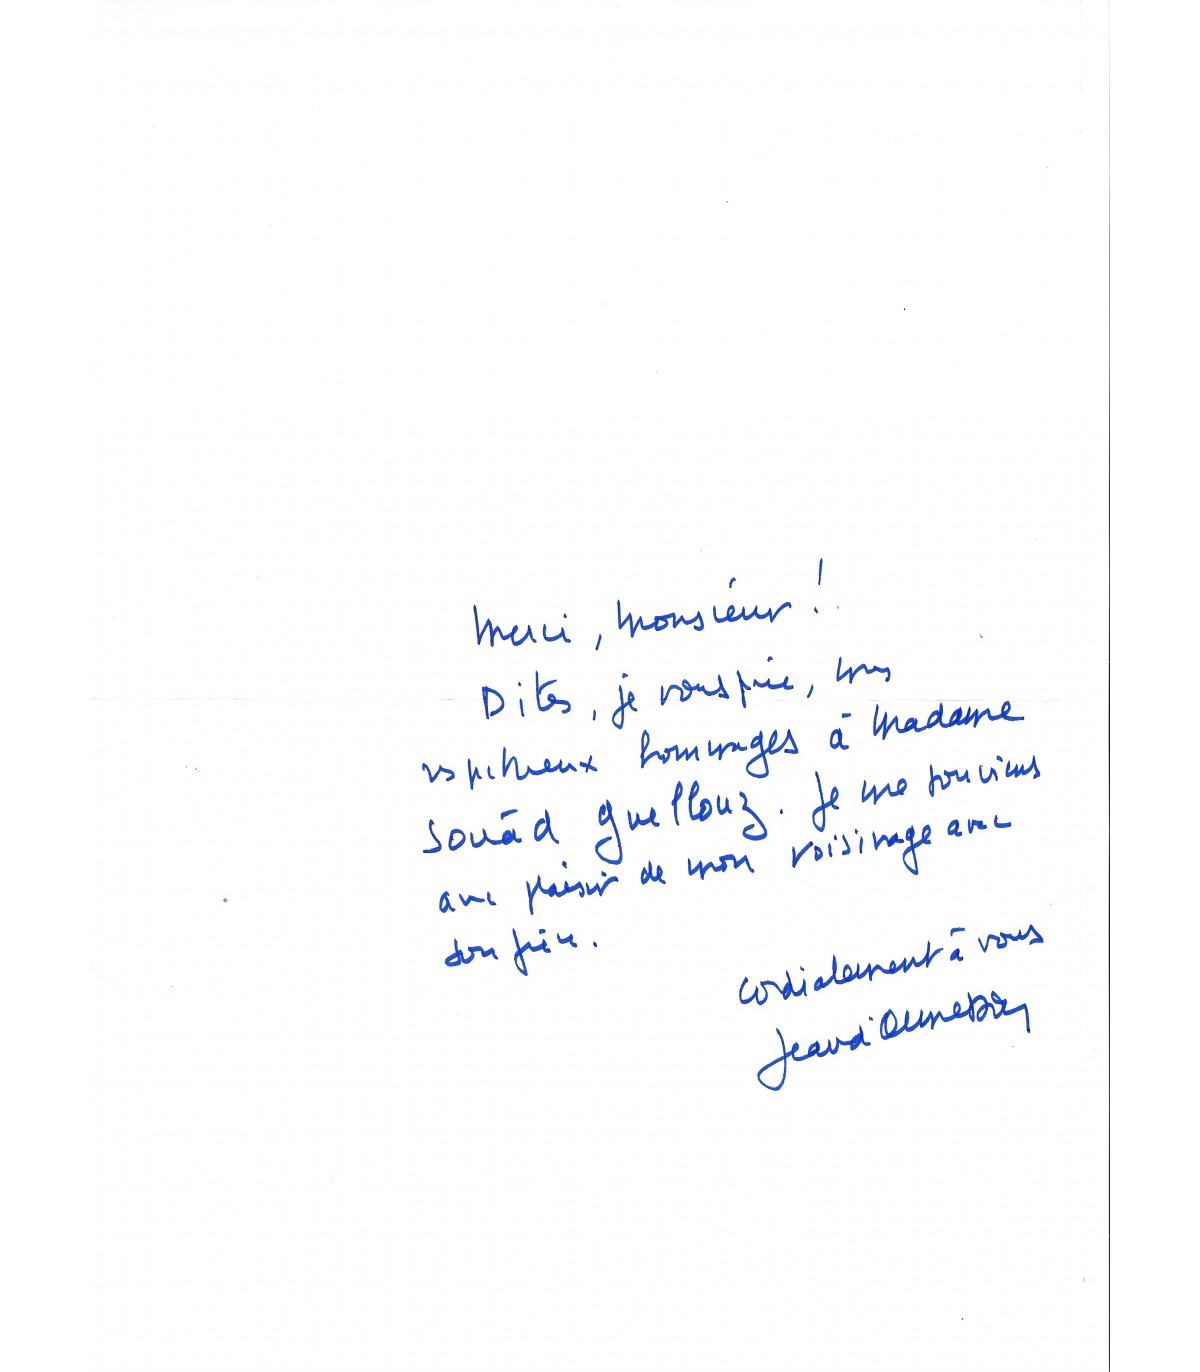 Merci, Monsieur !
Dites, je vous prie, mes
respectueux hommages à Madame
Souâd Guellouz. Je me souviens
avec plaisir de mon voisinage avec
son père.
Cordialement à vous
Jean d'Ormesson